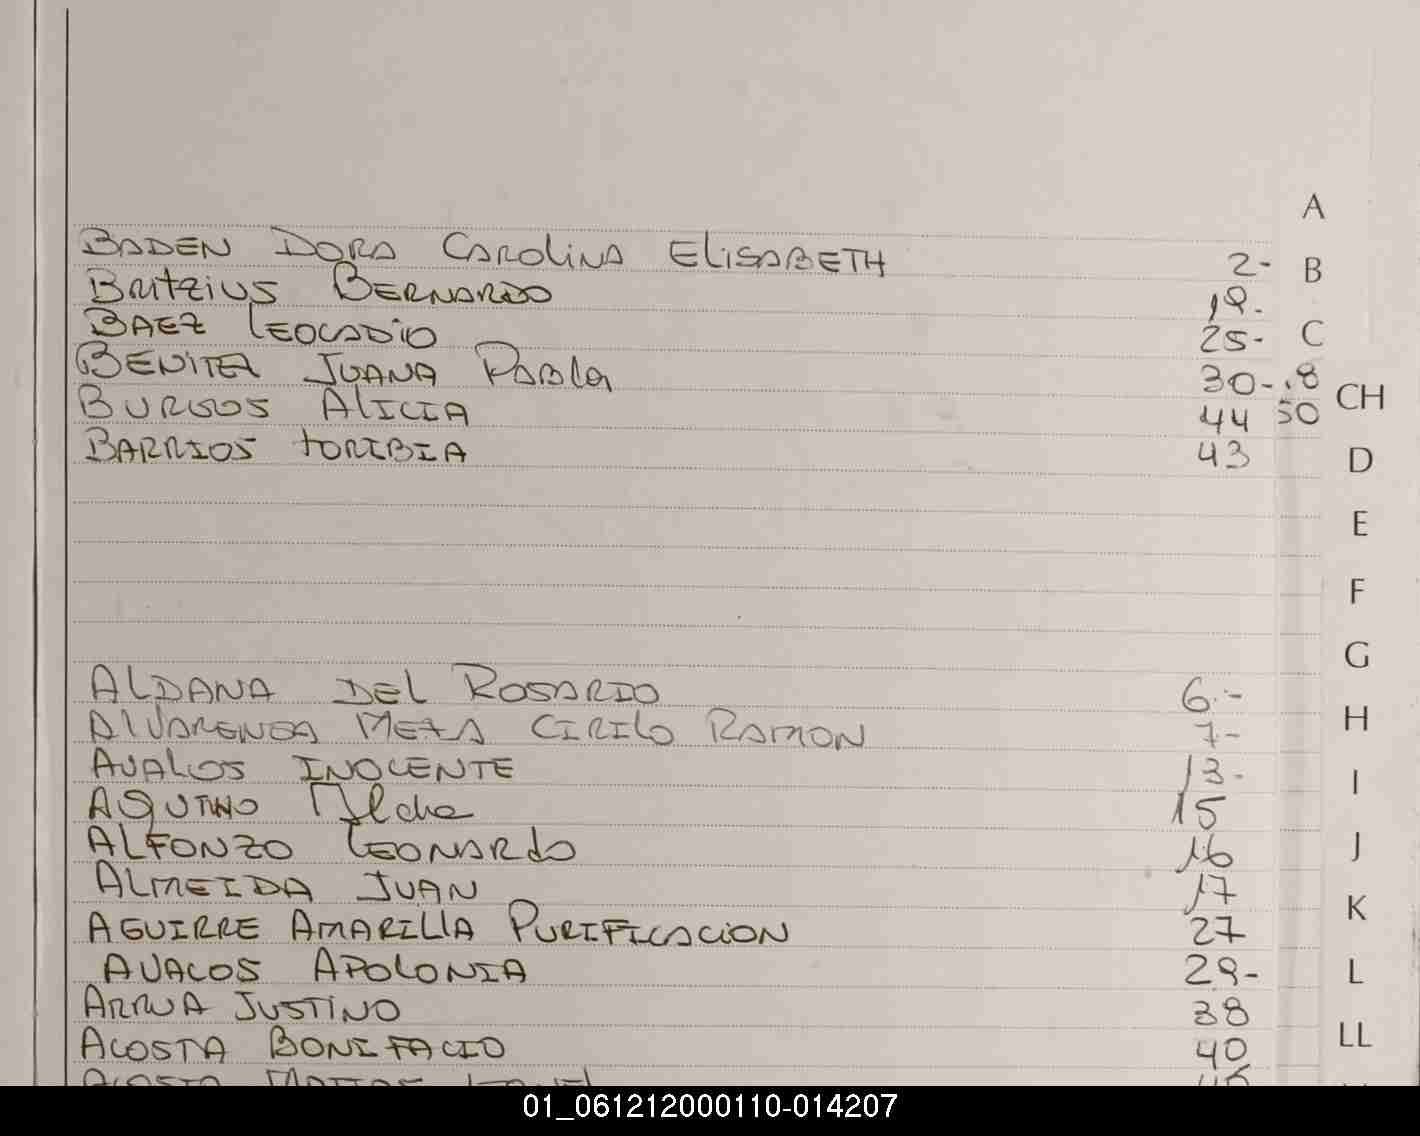 A
BADEN DORA CAROLINA ELISABETH 2-
B
Britzius BERNARDO 19.
BAEZ LEOCADIO 25-
C
BENITEZ JUANA PABLA 30-.8
CH
BURGOS ALICIA 44 50
BARRIOS TORIBIA 43
D
E
F
G
ALDANA DEL ROSARIO 6.-
H
ALVARENGA MEZA CIRILO RAMON 7-
AVALOS INOCENTE 13-
I
AQUINO 15
ALFONZO LEONARDO 16
J
ALMEIDA JUAN 17
K
AGUIRRE AMARILLA PURIFICACION 27
AVALOS APOLONIA 29-
L
ARRUA JUSTINO 38
LL
ACOSTA BONIFACIO 40
01_061212000110-014207